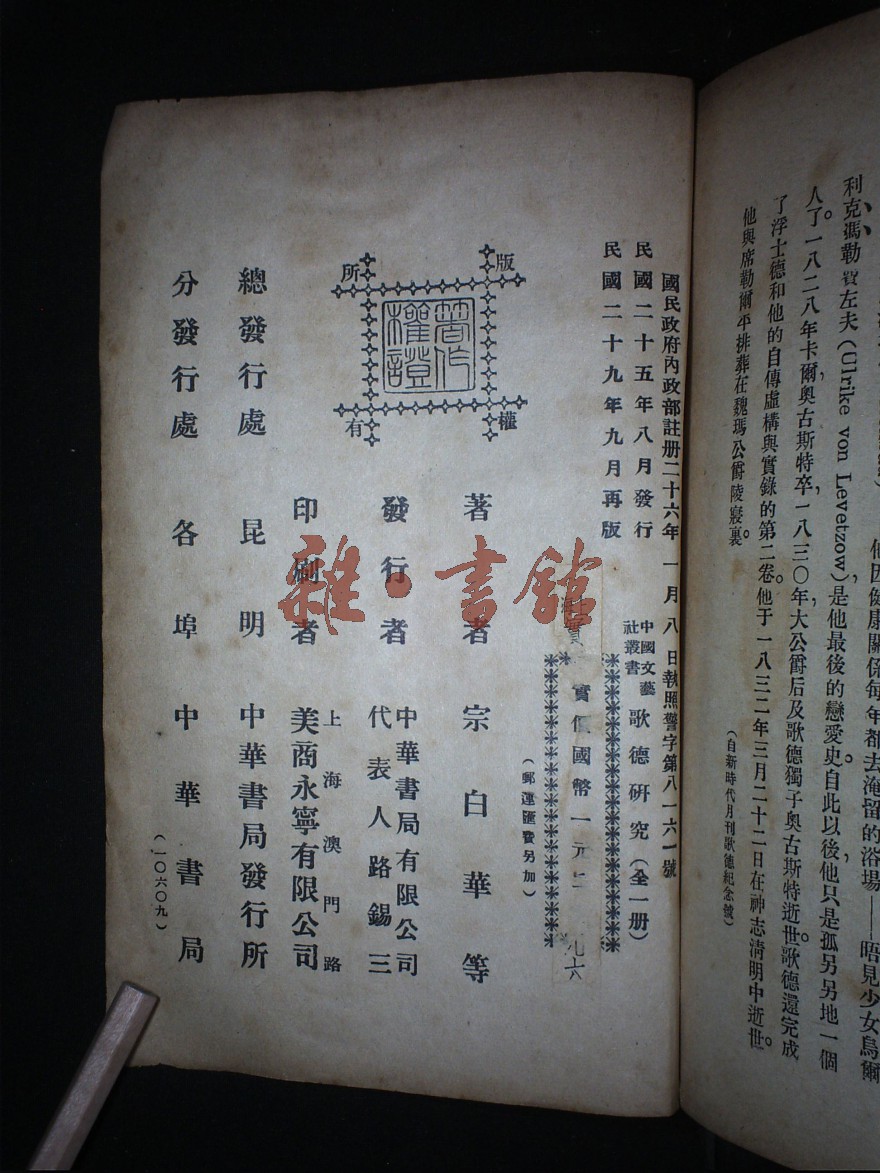 利克瑪勒
左夫(Ulrike von Levetzow)是他最後的戀愛史。自此以後,他只是孤另另地一個
人了。一八二八年卡爾奧古斯特卒,一八三〇年,大公爵后及歌德獨子奧古斯特逝世。歌德還完成
了浮士德和他的自傳虛構與實錄的第二卷。他于一八三二年三月二十二日在神志淸明中逝世。
他與席勒爾平排葬在魏瑪公爵陵寢裏。
他因健康關係每年都去淹留的浴場——晤見少女烏爾
(自新時代月刊歌德紀念號)
國民政府內政部註册二十六年一月八日執照警字第八一六一號
民國二十五年八月發行
民國二十九年九月再版
中國文藝社叢書 歌德研究(全一册)
實價國幣一元
九六
(郵運匯費另加)
版權所有
著作權證
著者 宗白華等
發行者 中華書局有限公司
代表人路錫三
印刷者 上海澳門路
美商永寧有限公司
總發行處 昆明 中華書局發行所
分發行處 各埠 中華書局
(一〇六〇九)
雜·書館